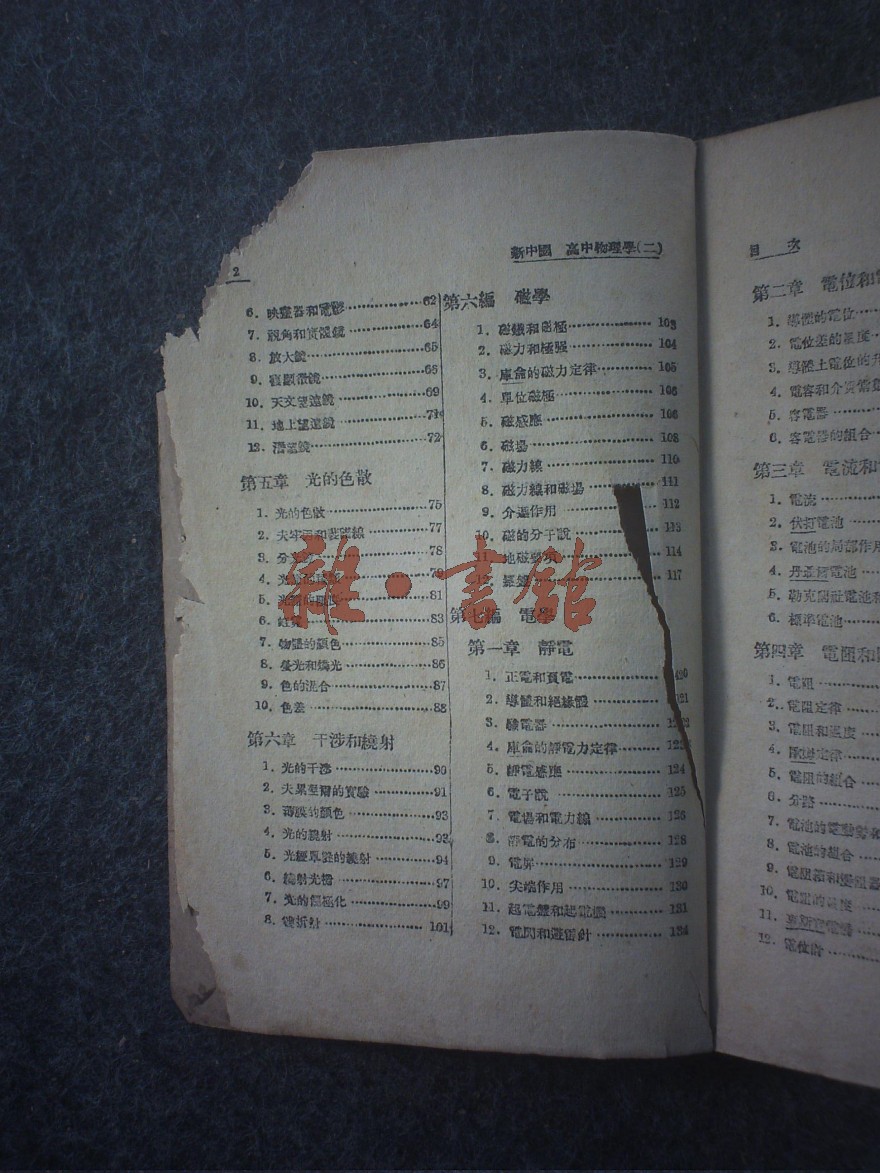 新中國 高中物理學(二)
2
6. 映畫器和電影 62
7. 視角和實體鏡 64
8. 放大鏡 65
9. 顯微鏡
10. 天文望遠鏡 69
11. 地上望遠鏡 71
12. 潛望鏡 72
第五章 光的色散
1. 光的色散 75
2. 夫牢因和費線 77
3. 分光 78
4. 光
5. 光 81
6. 83
7. 物體的顏色 85
8. 螢光和燐光 86
9. 色的混合 87
10. 色差 88
第六章 干涉和繞射
1. 光的干涉 90
2. 夫累至爾的實驗 91
3. 薄膜的顏色 93
4. 光的繞射 93
5. 光經單縫的繞射 94
6. 繞射光柵 97
7. 光的偏極化 99
8. 雙折射 101
第六編 磁學
1. 磁鐵和磁極 103
2. 磁力和極强 104
3. 庫侖的磁力定律 105
4. 單位磁極 106
5. 磁感應 106
6. 磁場 108
7. 磁力線 110
8. 磁力線和磁場 111
9. 介選作用 112
10. 磁的分子說 113
11. 地磁 114
12. 117
第七編 電學
第一章 靜電
1. 正電和負電 120
2. 導體和絕緣體 121
3. 驗電器 122
4. 庫侖的靜電力定律 123
5. 靜電感應 124
6. 電子說 125
7. 電場和電力線 126
8. 靜電的分布 128
9. 電屏 129
10. 尖端作用 130
11. 起電盤和起電機 131
12. 電閃和避雷針 134
目次
第二章 電位和電
1. 導體的電位
2. 電位差的量度
3. 導體上電位的升
4. 電容和介質常
5. 容電器
6. 容電器的組合
第三章 電流和
1. 電流
2. 伏打電池
3. 電池的局部作用
4. 丹聶爾電池
5. 勒克朗社電池和
6. 標準電池
第四章 電阻和
1. 電阻
2. 電阻定律
3. 電阻和溫度
4. 歐姆定律
5. 電阻的組合
6. 分路
7. 電池的電動勢和
8. 電池的組合
9. 電阻箱和變阻器
10. 電阻的量度
11. 惠斯登電橋
12. 電位計
雜·書館